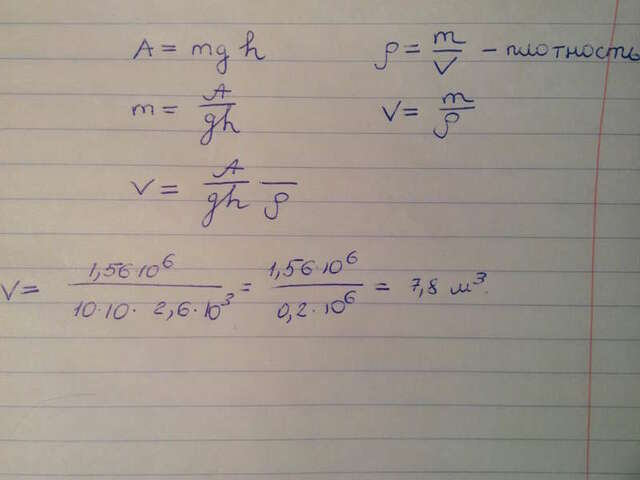 A = mgh ρ = m/V – плотность
m = A/gh V = m/ρ
V = A/gh —/ρ
V = 1,56·10⁶/10·10·2,6·10³ = 1,56·10⁶/0,2·10⁶ = 7,8 м³.